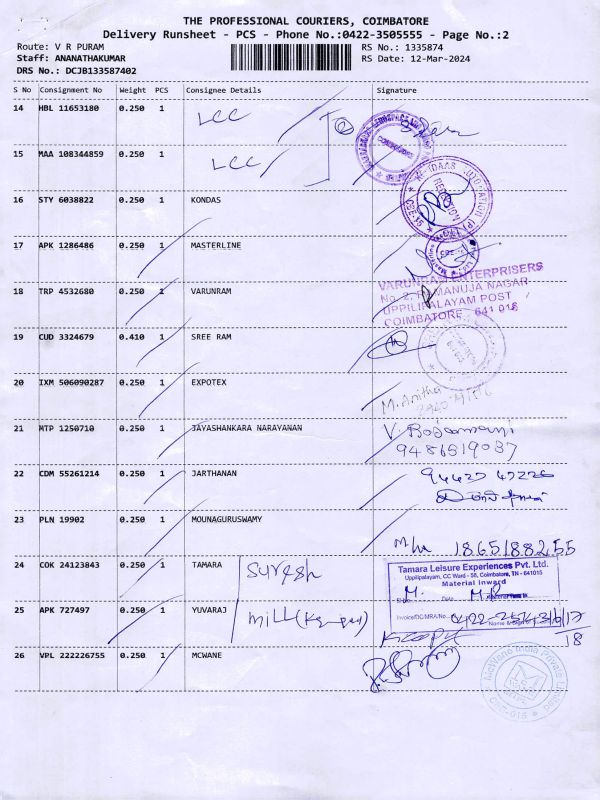 THE PROFESSIONAL COURIERS, COIMBATORE
Delivery Runsheet - PCS - Phone No.:0422-3505555 - Page No.:2
Route: V R PURAM RS No.: 1335874
Staff: ANANATHAKUMAR RS Date: 12-Mar-2024
DRS No.: DCJB133587402
S No Consignment No Weight PCS Consignee Details Signature
14 HBL 11653180 0.250 1 LCC
15 MAA 108344859 0.250 1 LCC
16 STY 6038822 0.250 1 KONDAS
17 APK 1286486 0.250 1 MASTERLINE
18 TRP 4532680 0.250 1 VARUNRAM
VARUNRAM ENTERPRISERS
No. 2, RAMANUJA NAGAR
UPPILIPALAYAM POST
COIMBATORE - 641 015
19 CUD 3324679 0.410 1 SREE RAM
20 IXM 506090287 0.250 1 EXPOTEX
M. Anitha
21 MTP 1250710 0.250 1 JAYASHANKARA NARAYANAN
9486519037
22 CDM 55261214 0.250 1 JARTHANAN
23 PLN 19902 0.250 1 MOUNAGURUSWAMY
24 COK 24123843 0.250 1 TAMARA Suresh
Tamara Leisure Experiences Pvt. Ltd.
Uppilipalayam, CC Ward - 58, Coimbatore, TN - 641015
Material Inward
25 APK 727497 0.250 1 YUVARAJ Mill
Invoice/DC/MRA/No.
26 VPL 222226755 0.250 1 MCWANE